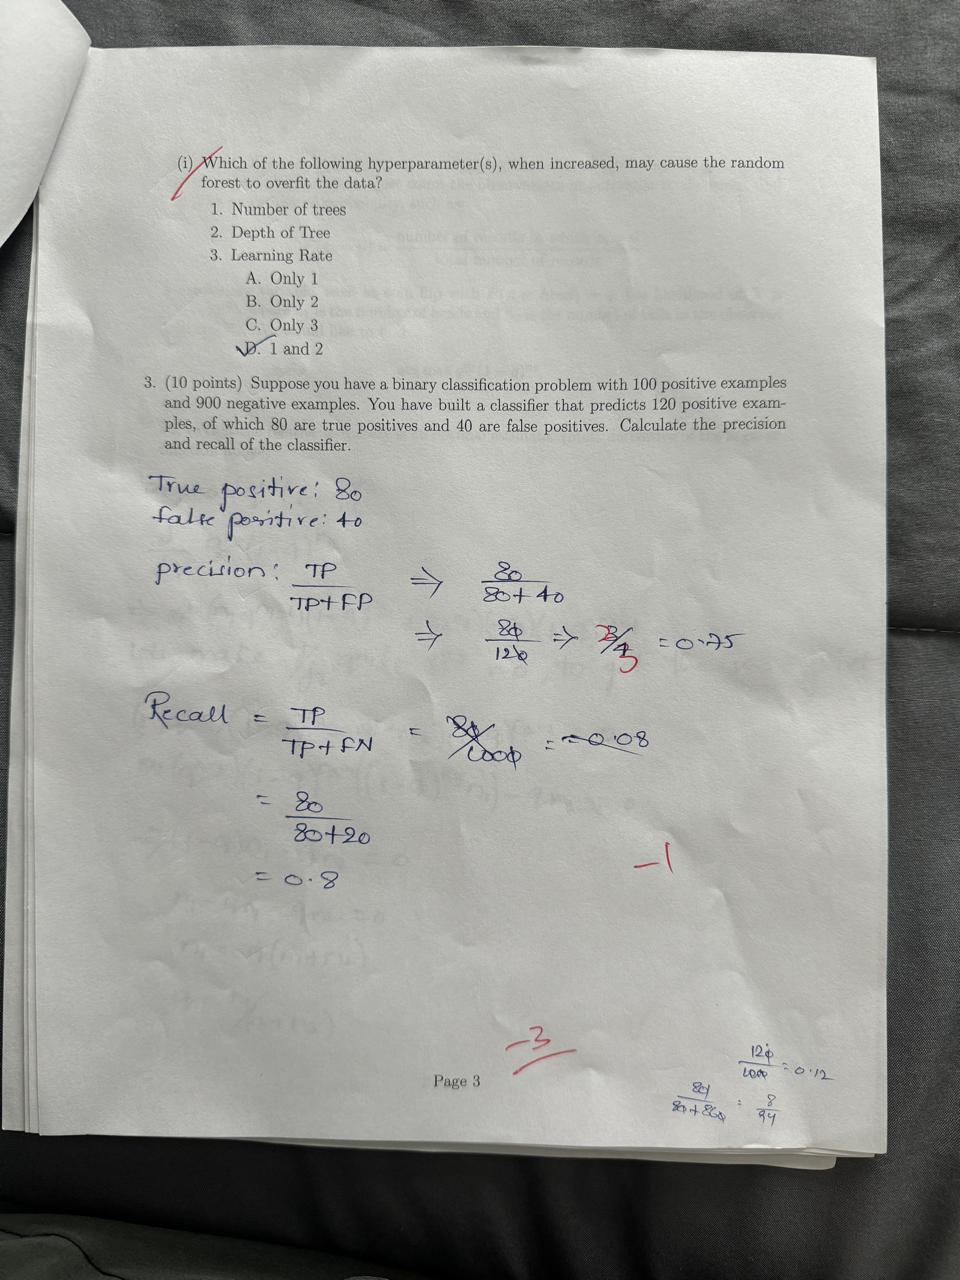 (i) Which of the following hyperparameter(s), when increased, may cause the random
forest to overfit the data?
1. Number of trees
2. Depth of Tree
3. Learning Rate
A. Only 1
B. Only 2
C. Only 3
D. 1 and 2
3. (10 points) Suppose you have a binary classification problem with 100 positive examples
and 900 negative examples. You have built a classifier that predicts 120 positive exam-
ples, of which 80 are true positives and 40 are false positives. Calculate the precision
and recall of the classifier.
True positive: 80
false positive: 40
precision: TP/TP+FP ⇒ 80/80+40
⇒ 80/120 ⇒ 2/3 = 0.75
Recall = TP/TP+FN = 80/1000 = 0.08
= 80/80+20
= 0.8
-1
-3
Page 3
120/1000 = 0.12
80/80+860 = 8/94